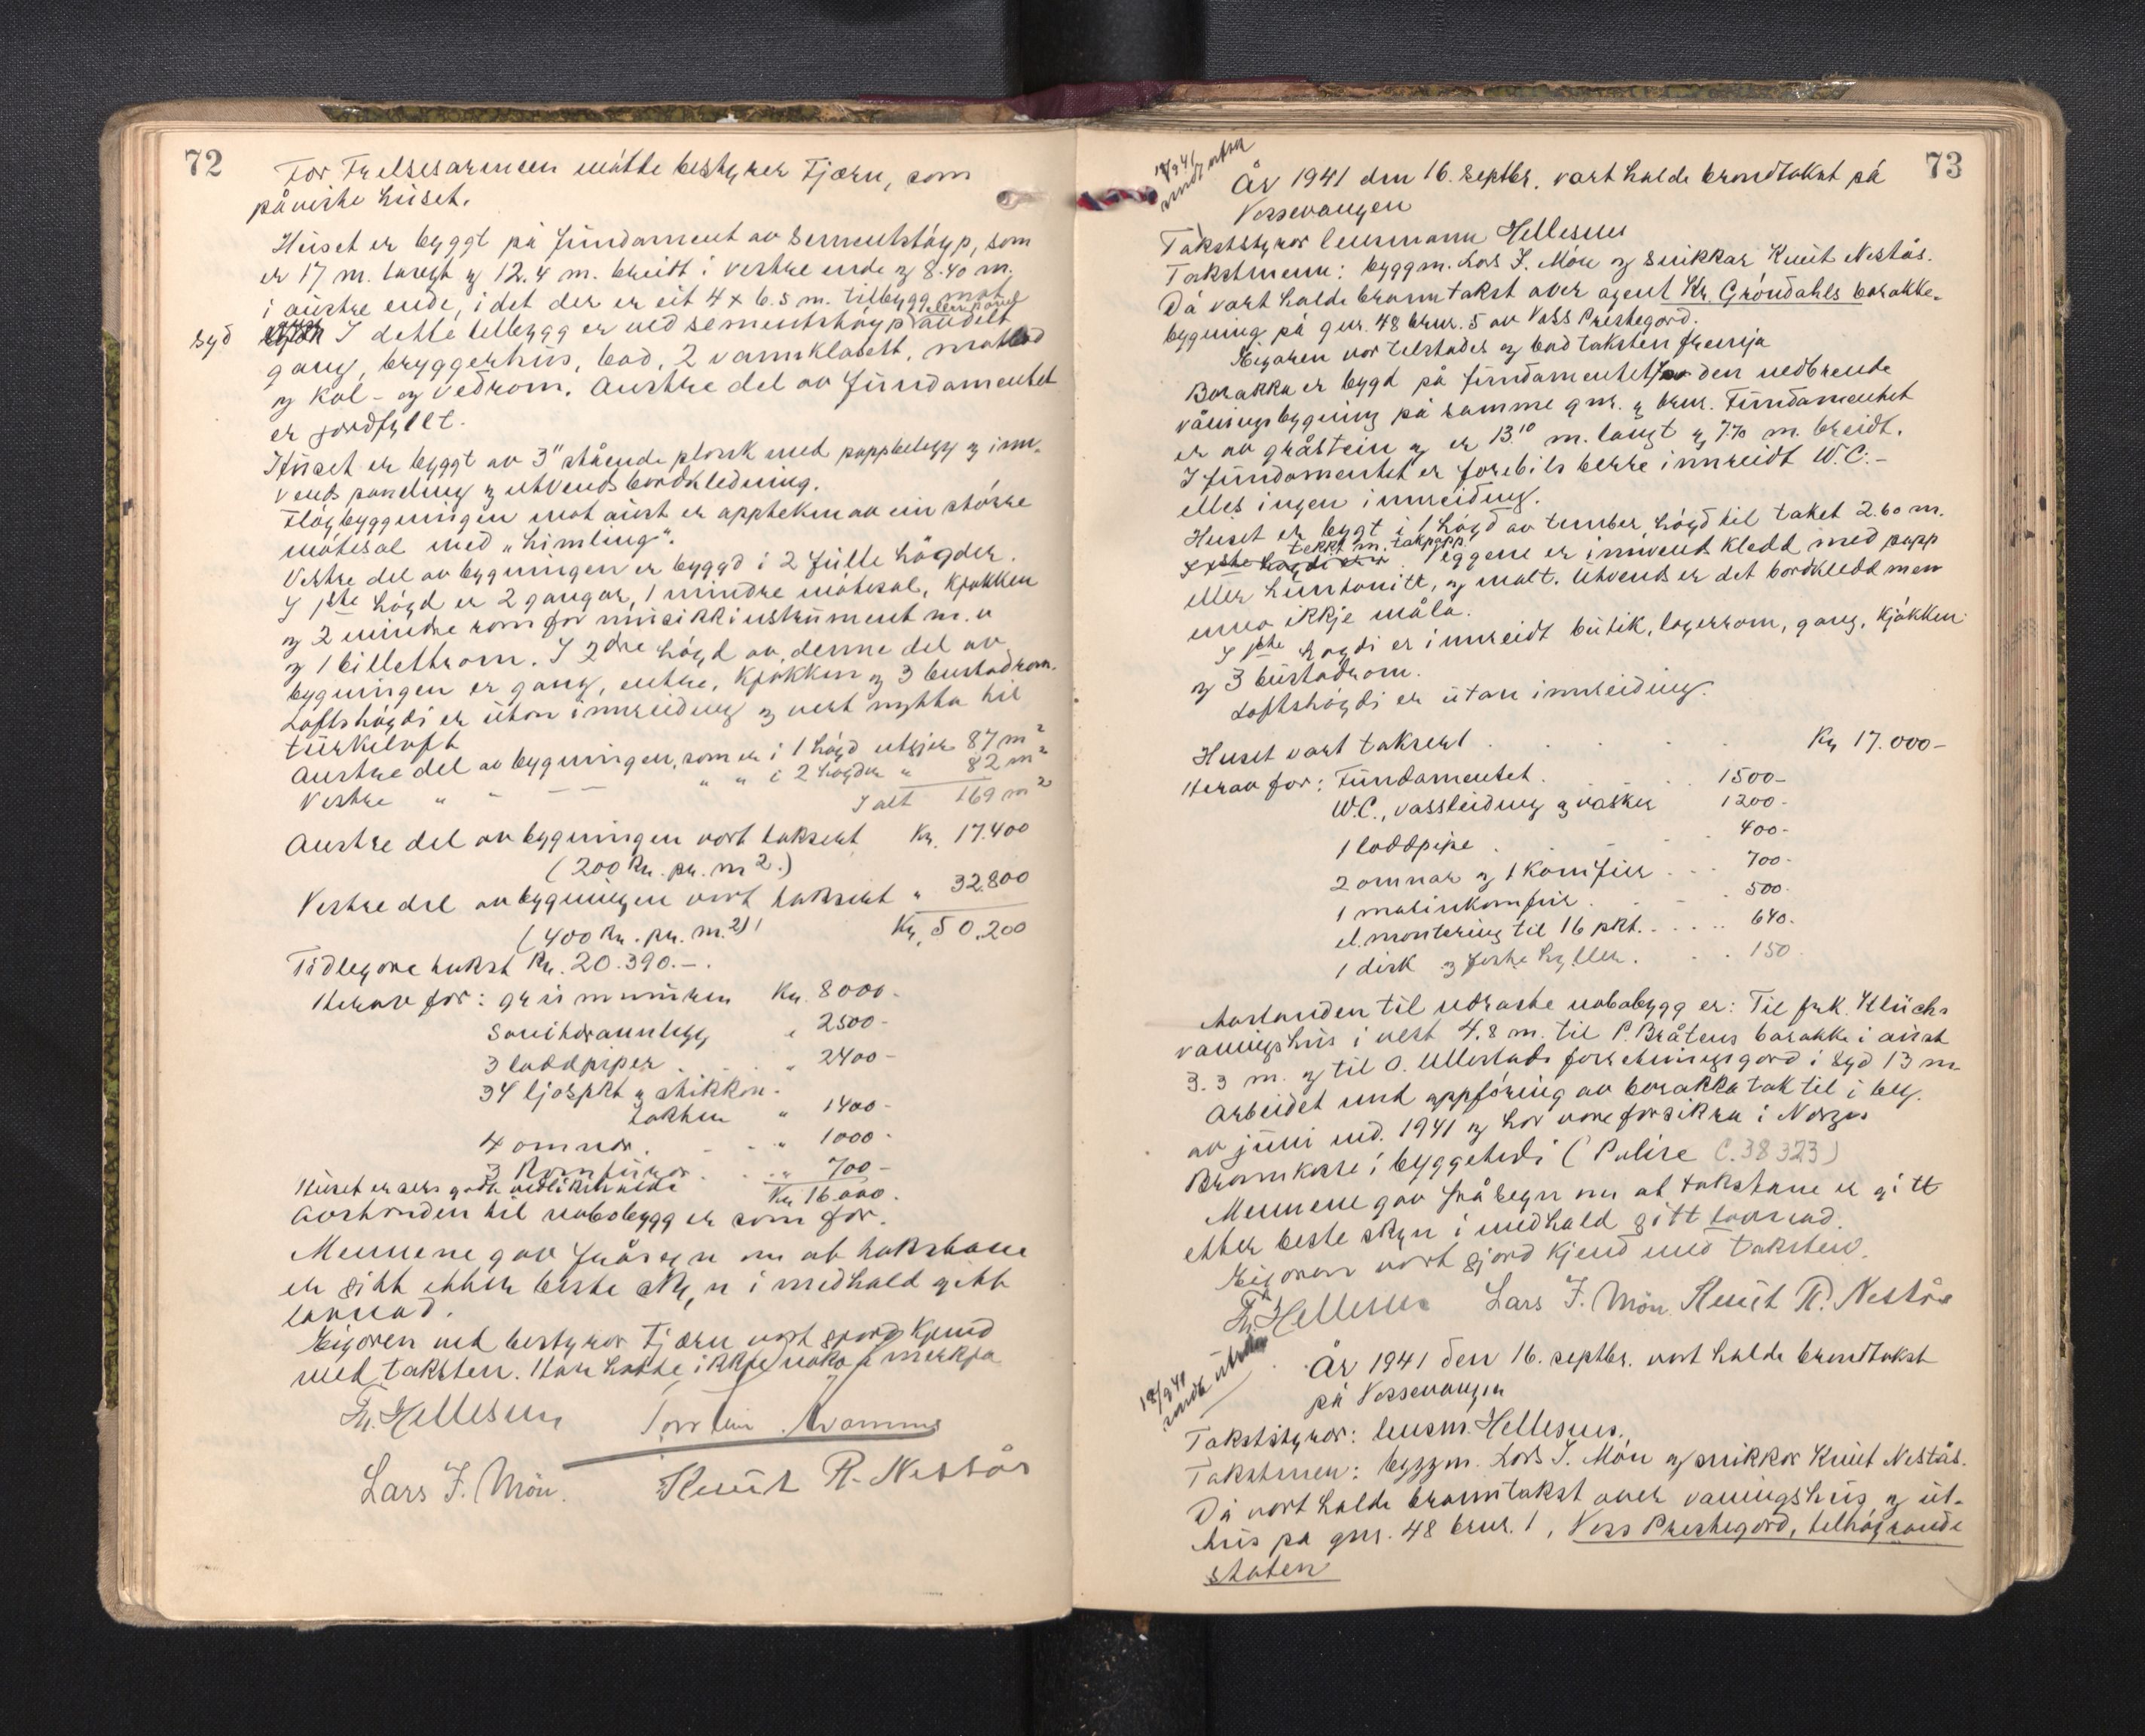 72
For Frelsesarmeen møtte bestyrer Tjærn, som
påviste huset.
Huset er byggt på fundament av sementstøyp, som
er 17 m. langt og 12.4 m. breidt i vestre ende og 8.40 m.
i austre ende, idet der er eit 4 x 6.5 m. tilbygg mot
syd I dette tilbygg er ved sementstøyp avdelt
gang, bryggerhus, bad, 2 vannklosett, matbod
og kol- og vedrom. Austre del av fundamentet
er jordfyllt.
Huset er byggt av 3" stående plank med pappbelegg og inn-
vends paneling og utvends bordkledning.
Fløybyggningen mot aust er oppteken av ein større
møtesal med „himling".
Vestre del av bygningen er byggd i 2 fulle høgder.
I 1ste høgd er 2 gangar, 1 mindre møtesal, kjøkken
og 2 mindre rom for musikkinstrument m. v
og 1 billettrom. I 2dre høgd av denne del av
bygningen er gang, entre, kjøkken og 3 bustadrom.
Loftshøgdi er uton innreiding og vert nytta til
turkeloft
Austre del av bygningen, som er i 1 høgd utgjer 87 m²
Vestre " " " " i 2 høgder " 82 m²
I alt 169 m²
Austre del av bygningen vart taksert Kr. 17.400
(200 kr. pr. m².)
Vestre del av bygningen vart taksert " 32.800
(400 kr. pr. m.²) Kr. 50.200
Tidlegare takst Kr. 20.390.-.
Herav for: grunnmuren Kr. 8000-
Sanitæranlegg " 2500-
3 loddpiper " 2400-
34 ljospkt og stikkon-
takter " 1400-
4 omnar " 1000-
3 komfurar " 700-
Huset er sers godt vedlikehalde Kr. 16.000.
Avstanden til nabobygg er som før.
Mennene gav fråsegn om at takstane
er gitt etter beste skyn i medhald gitt
lovnad.
Eigaren ved bestyrer Tjærn vart gjord kjend
med taksten. Han hadde ikkje noko å merkja
Th. Hellesnes
Lars F. Møn. Knut R. Nestås
73
År 1941 den 16. septbr. vart halde brandtakst på
Vossevangen
Takststyrar lensmann Hellesnes
Takstmenn: byggm. Lars F. Møn og snikkar Knut Nestås.
Då vart halde branntakst over agent Kr. Grøndahls barakke-
bygning på gnr. 48 brnr. 5 av Voss Prestegard.
Eigaren var tilstades og bad taksten fremja
Barakka er bygd på fundamentet for den nedbrende
våningsbygning på samme gnr. og brnr. Fundamentet
er av gråstein og er 13.10 m. langt og 7.70 m. breidt.
I fundamentet er forebils berre innreidt W.C.-
elles ingen innreiding.
Huset er bygt i 1 høgd av tember, høgd til taket 2.60 m.
tekkt m. takpapp.
Veggene er innvend kledd med papp
eller huntonitt, og malt. Utvends er det bordkledd men
enno ikkje måla.
I 1ste høgdi er innreidt butik, lagerrom, gang, kjøkken
og 3 bustadrom.
Loftshøgdi er utan innreiding.
Huset vart taksert Kr 17.000-
Herav for: Fundamentet 1500-
W.C., vassleidning og vasker 1200-
1 loddpipe 400-
2 omnar og 1 komfur 700-
1 matinkomfur 500-
el. montering til 16 pkt. 640-
1 disk og faste hyller 150
Avstanden til næraste nabobygg er: Til frk. Klüchs
våningshus i vest 4.8 m. til P. Bråtens barakke i aust
3.3 m. og til O. Ullestads forretningsgard i syd 13 m.
Arbeidet med oppføring av barakka tok til i beg.
av juni md. 1941 og har vore forsikra i Norges
Brannkasse i byggetidi (Polise C.38323)
Mennene gav fråsegn om at takstane er gitt
etter beste skyn i medhald gitt lovnad.
Eigaren vart gjord kjend med taksten.
Th. Hellesnes Lars F. Møn Knut R. Nestås
År 1941 den 16. septbr. vart halde brandtakst
på Vossevangen
Takststyrar: lensm. Hellesnes.
Takstmen: byggm. Lars F. Møn og snikkar Knut Nestås.
Då vart halde branntakst over våningshus og ut-
hus på gnr. 48 brnr. 1, Voss Prestegard, tilhøyrande
staten